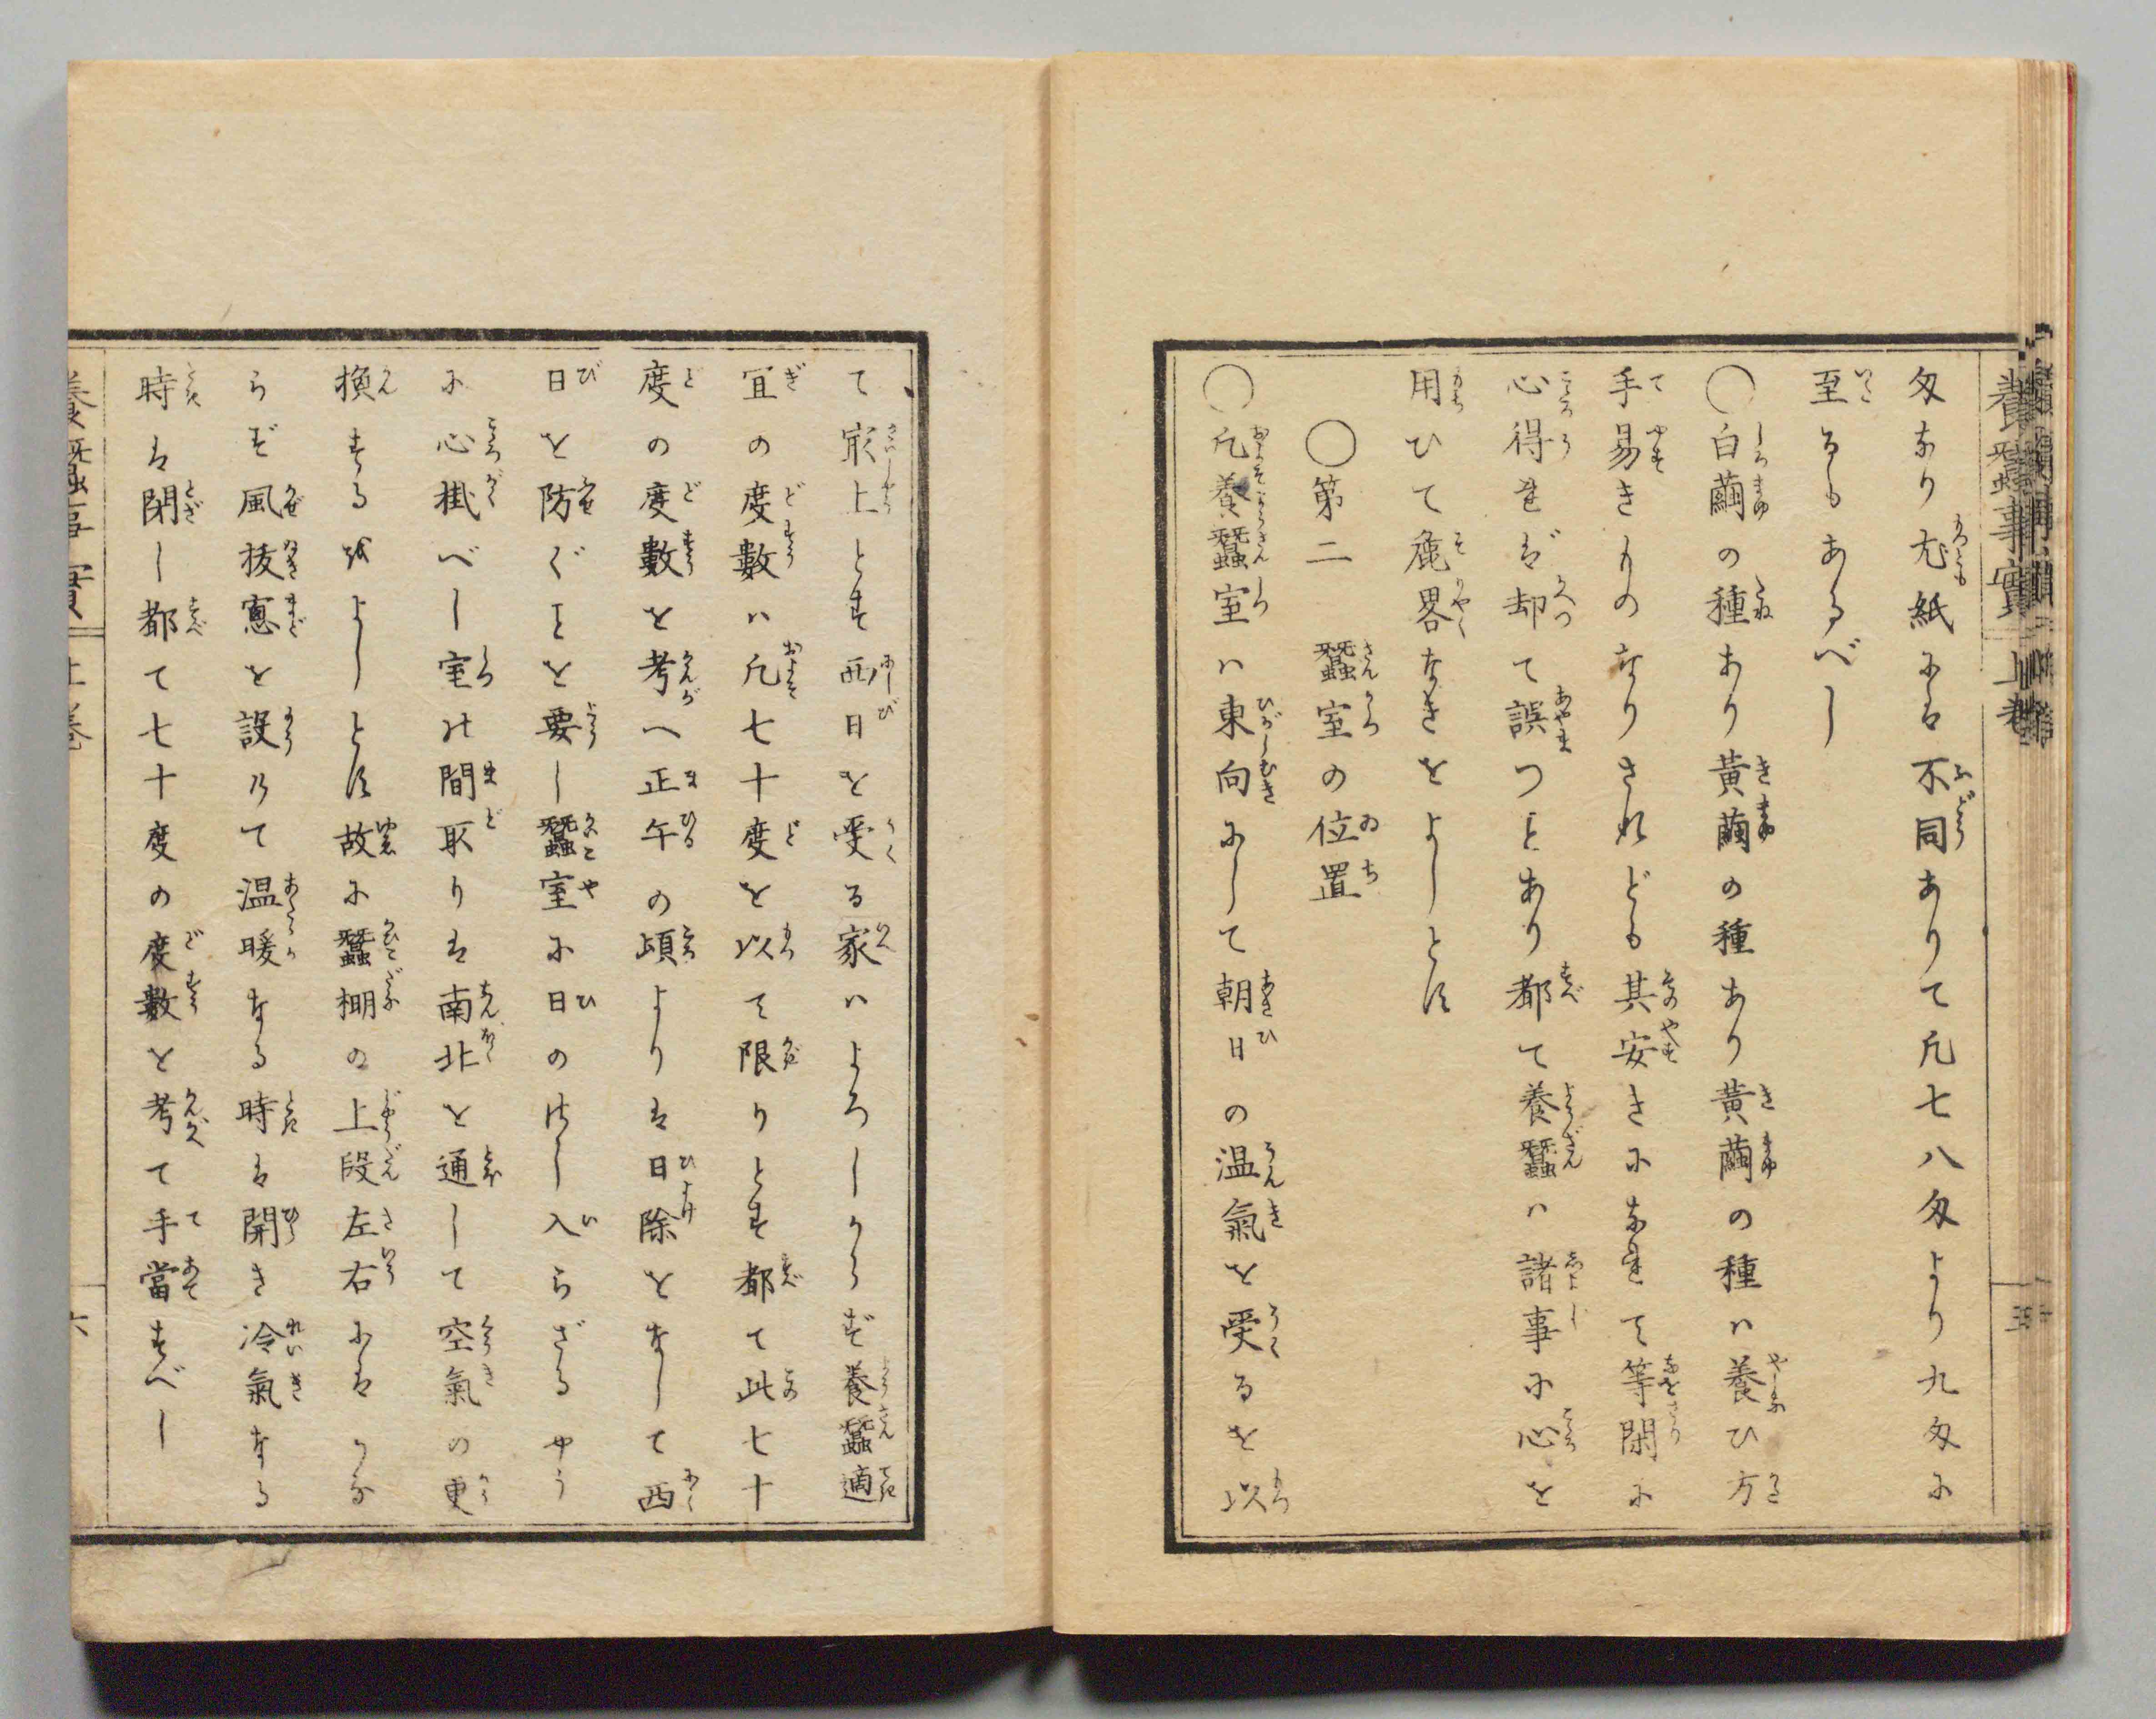 養蠶事實 上巻
五
匁なり尤紙によは不同ありて凡七八匁より九匁に
至るもあるべし
〇白繭の種あり黄繭の種あり黄繭の種ハ養ひ方
手易きものなりされども其安きになれて等閑に
心得れば却て誤つことあり都て養蠶ハ諸事に心を
用ひて麁畧なきをよしとす
〇第二 蠶室の位置
〇凡養蠶室ハ東向にして朝日の温氣を受るを以
て最上とす西日を受る家ハよろしからず養蠶適
宜の度數ハ凡七十度を以て限りとす都て此七十
度の度數を考へ正午の頃よりは日除をなして西
日を防ぐことを要し蠶室に日のさし入らざるやう
に心掛べし室の間取りは南北を通して空氣の更
換するをよしとす故に蠶棚の上段左右にはかな
らず風抜窓を設けて温暖なる時は開き冷氣なる
時は閉し都て七十度の度數を考て手當すべし
養蠶事實 上巻
六